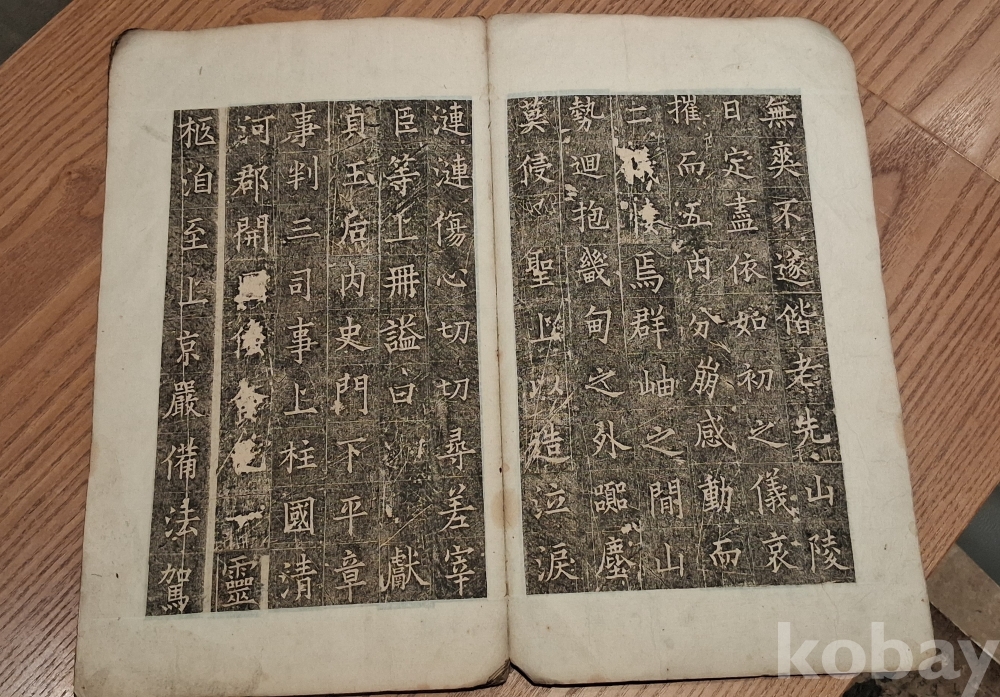 無爽不遂偕老先山陵
日定盡依如初之儀哀
摧而五內分崩感動而
二儀悽焉群岫之間山
勢迴抱畿甸之外塵
莫侵聖上以造泣淚
漣漣傷心切切尋差宰
臣等上冊謚曰獻
貞王后內史門下平章
事判三司事上柱國清
河郡開國侯食邑一靈
柩洎至上京嚴備法駕
kobay